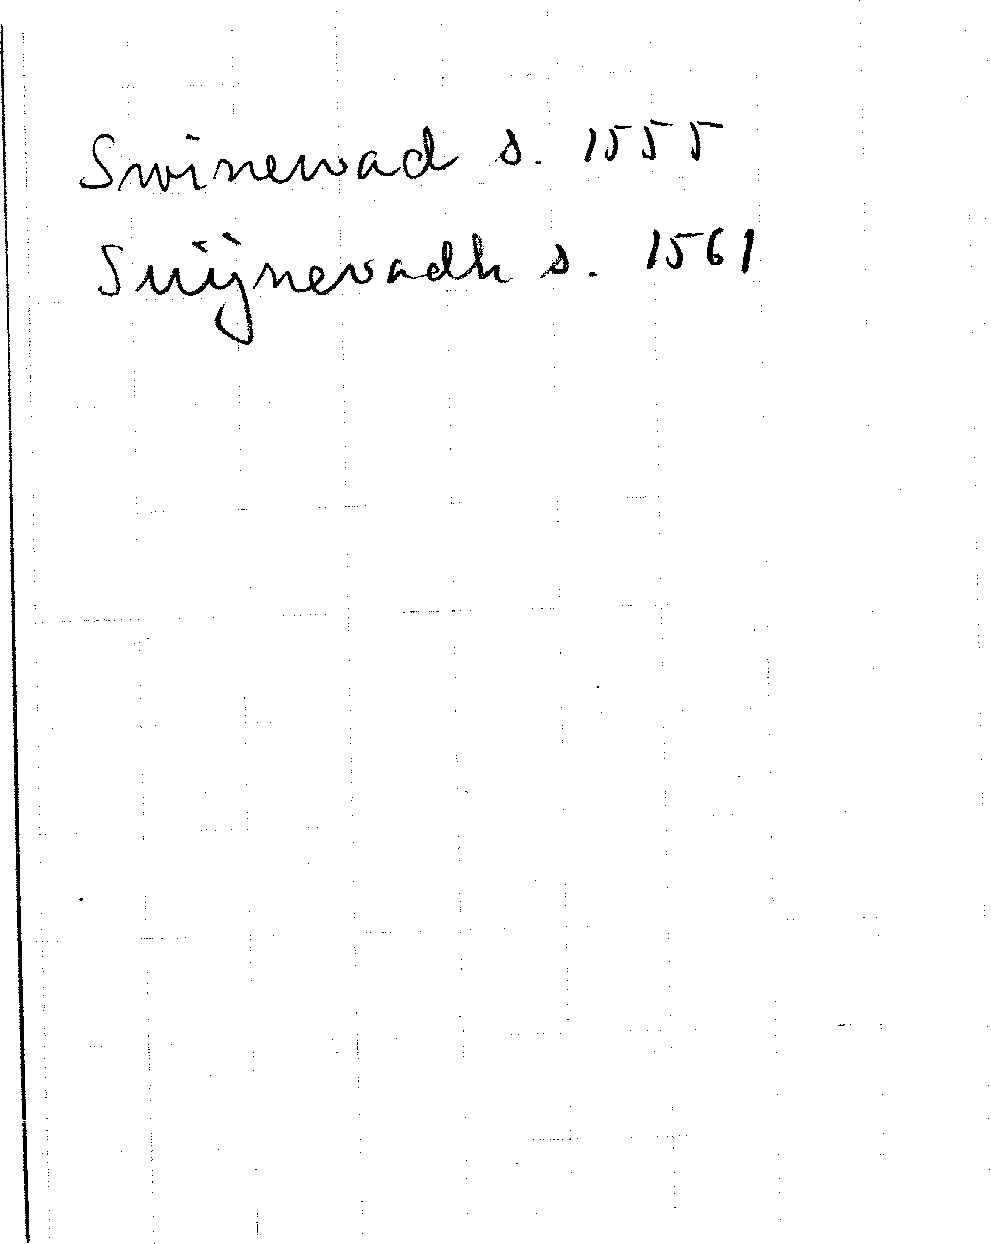 Swinewad s. 1555
Suijnevadh s. 1561